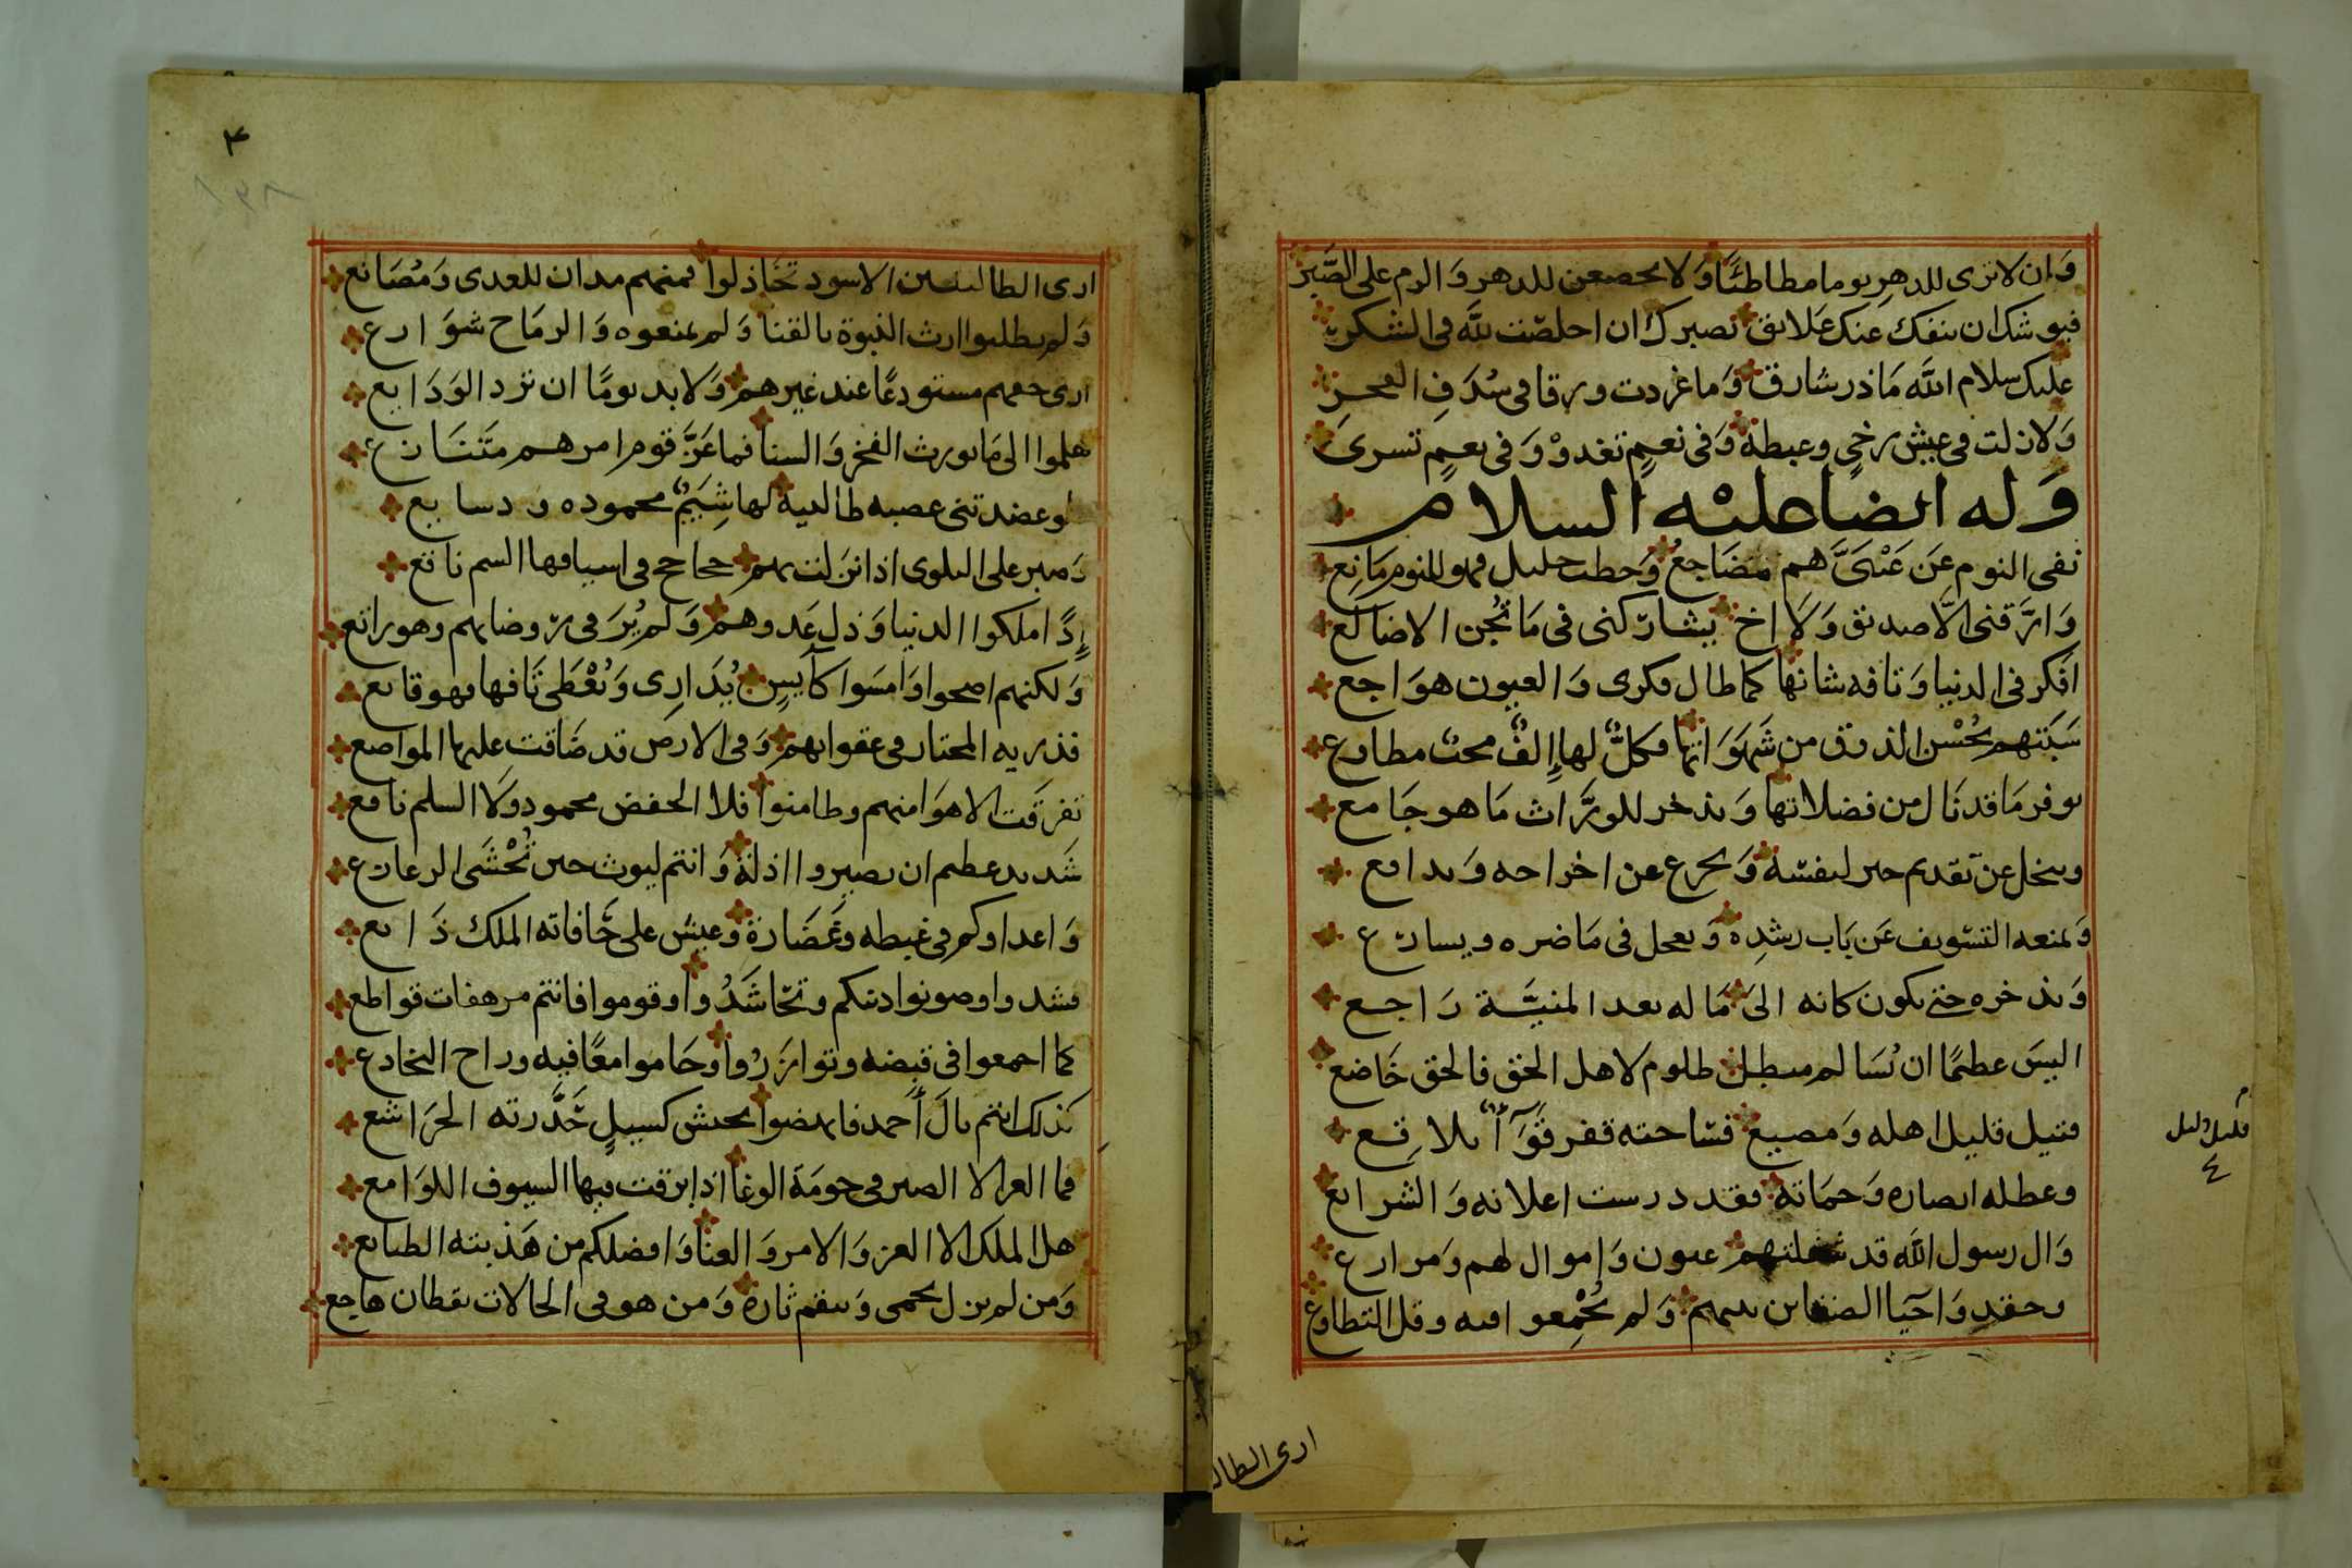 وَان لا ترى للدهرِ يوما مطاطئًا وَلا تخضعن للدهر وَالزم على الصَّبر
فيوشك ان ينفك عنك عَلايق تصبرك ان اخلصت للَّه فى الشكر
عليك سلام اللَّه مَا ذر شارق وَما غردت ورقا فى سُدَفِ الفجر
وَلا زلت فى عيش رخىٍ وغبطة وَفى نعمٍ تغدوْ وَفى نعمٍ تسرىَ
وَله ايضًا عليْه السلام
نفى النوم عَن عَيْنَىَّ هم مضَاجع وَخطب جليل فهو للنوم مَانِع
وَارَّقنى الَّا صديق وَلَا اخ يشارَكنى فى مَا تُجن الاضالع
افكر فى الدنيا وَتافه شانها كما طال فكرى وَالعيون هوَاجع
سَبَتهم بحُسْن الذوق من شهَوَاتها فكلٌّ لها إِلفٌ محب مطاوع
يوفر مَا قد نَال من فضلاتها وَيذخر للورَّاث مَا هو جَامع
ويبخل عن تَقديم خير لنفسه وَيخرج عن اخراجه وَيدافع
وَيمنعه التسْويف عَن بَاب رشدِه وَيعجل فى مَا ضره ويسارع
وَيذخره حتى يكون كانه الىَ مَا له بعد المنيَّة رَاجع
اليسَ عظيمًا ان نُسَالم مبطل ظلوم لاهل الحَق فالحق خَاضع
قتيل قليل اهله وَمضيع فسَاحته قفر قَوَآءٌ بلاقِع
وعطله انصاره وَحمَاته فقد درست اعلانه وَالشرايع
وَال رسول اللَّه قد شغلتهم عيون وَإموال لهم وَمزارع
وحقد وَاحيَا الضغاين بينهم وَلم يُجْمِعوا فيه وقل التطاوع
قليل دليل
ع
ارى الطا
٣
١٣٨
ارى الطالبيين الاسود تخَاذلوا فمنهم مدان للعدى وَمُصَانع
وَلم يطلبوا ارث النبوة بالقنا وَلم يمنعوه وَالرمَاح شوَارع
ارى حقهم مستودعًا عند غيرهم وَلا بد يومًا ان ترد الوَدَايع
هلموا الى مَا يورث الفخر وَالسنا فما عَزَّ قوم امرهم متَنَازع
لو عضدتنى عصبه طالبية لها شِيَمٌ محموده ودسايع
وَصبر على البلوى اذا نزَلت بهم جحاجح فى اسيافها السم ناقع
إِذًا ملكوا الدنيا وَذل عَدوهم وَلم يُرَ فى روضاتهم وهو راتع
وَلكنهم اصبحوا وَامسَوا كآيسٍ يُدَارِى وَيُعْطَى تَافها فهو قانع
فذريه المختار فى عقوابهم وَفى الارض قد ضَاقت عليها المواضع
تفرقَت الاهوَا منهم وطامنوا فلا الخفض محمود وَلا السلم نافع
شَديد عظيم ان يصيروا اذلةً وَانتم ليوث حين تُخْشَى الزعازع
وَاعداوكم فى غبطه وغَضَارة وَعيش على حَافاته الملك ذَايع
فشدوا وصونوا دينكم وتحَاشَدُوا وقوموا فانتم مرهفات قواطع
كما اجمعوا فى قبضه وتوازَرُوا وحَاموا معًا فيه وراح التخادع
كذلك انتم يالَ أَحمد فانهضوا بجيش كسيلٍ حَدَّرته الجرَاشع
فما العز الا الصبر فى حومَة الوغا اذا برقت فيها السيوف اللوَامع
هل الملك الا العز وَالامر وَالغنا وَافضلكم من هَذبته الطبايع
وَمن لم يزل يحمى وَينقم ثاره وَمن هو فى الحالات يقظان هاجع